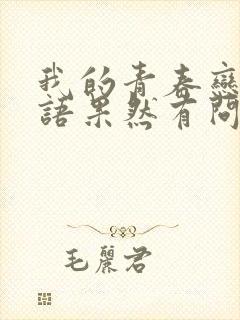 我的青春戀
語果然有問
毛麗君